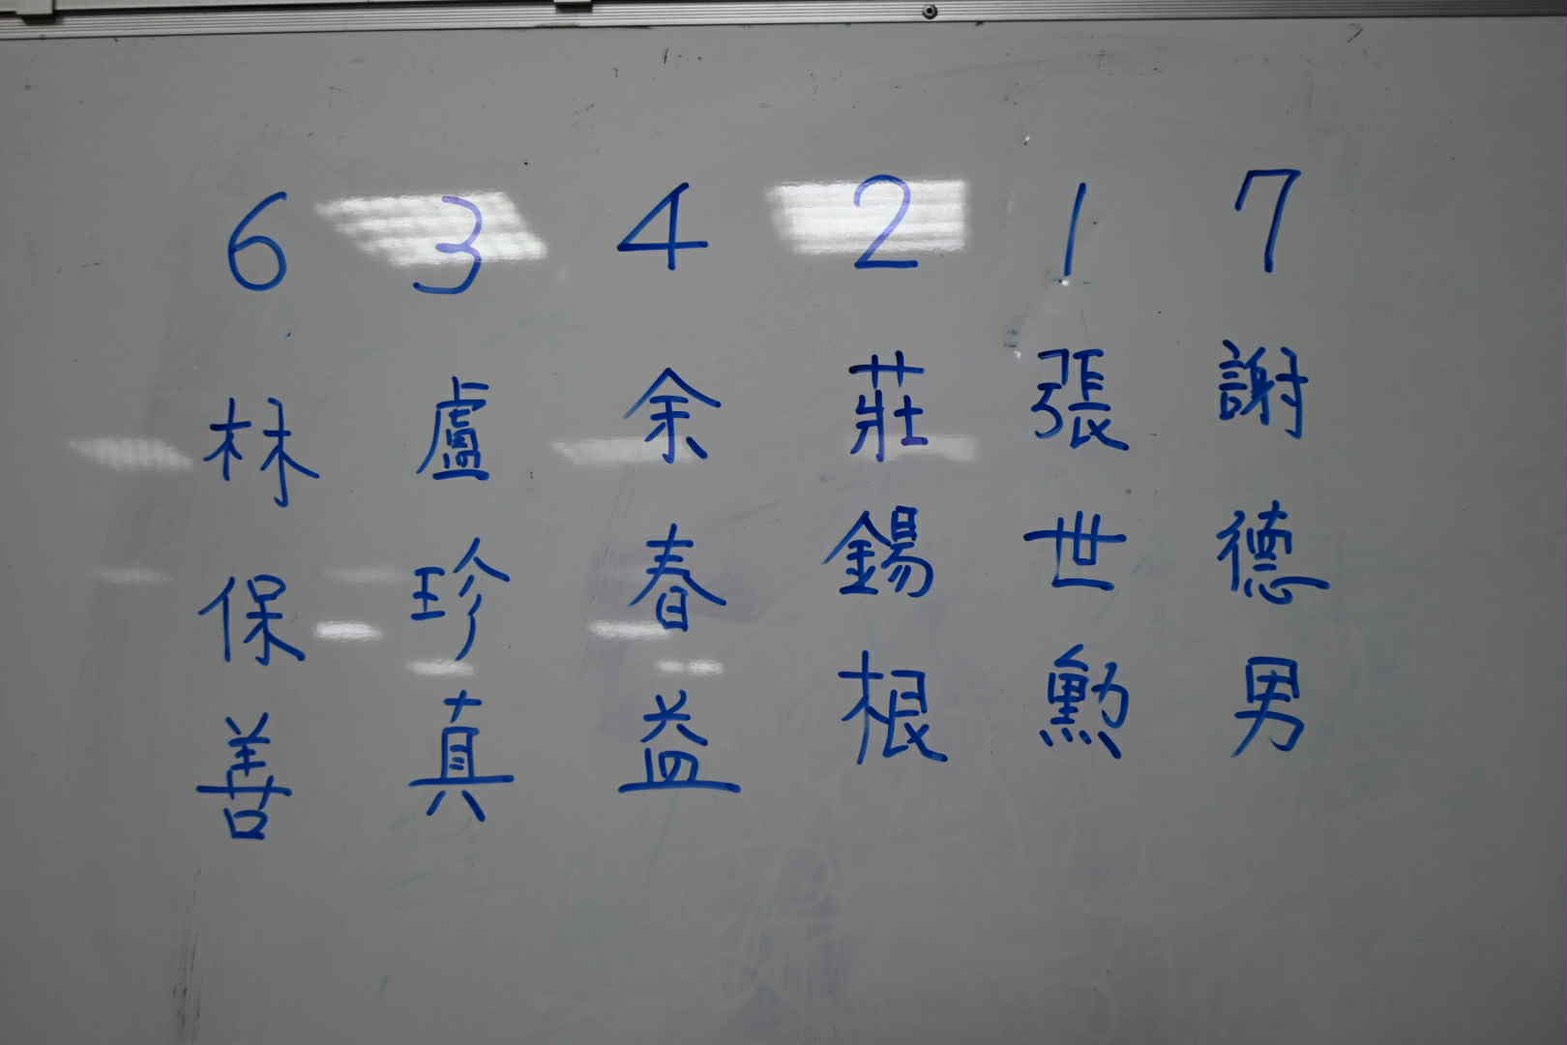 7 謝德男
1 張世勳
2 莊錫根
4 余春益
3 盧珍真
6 林保善